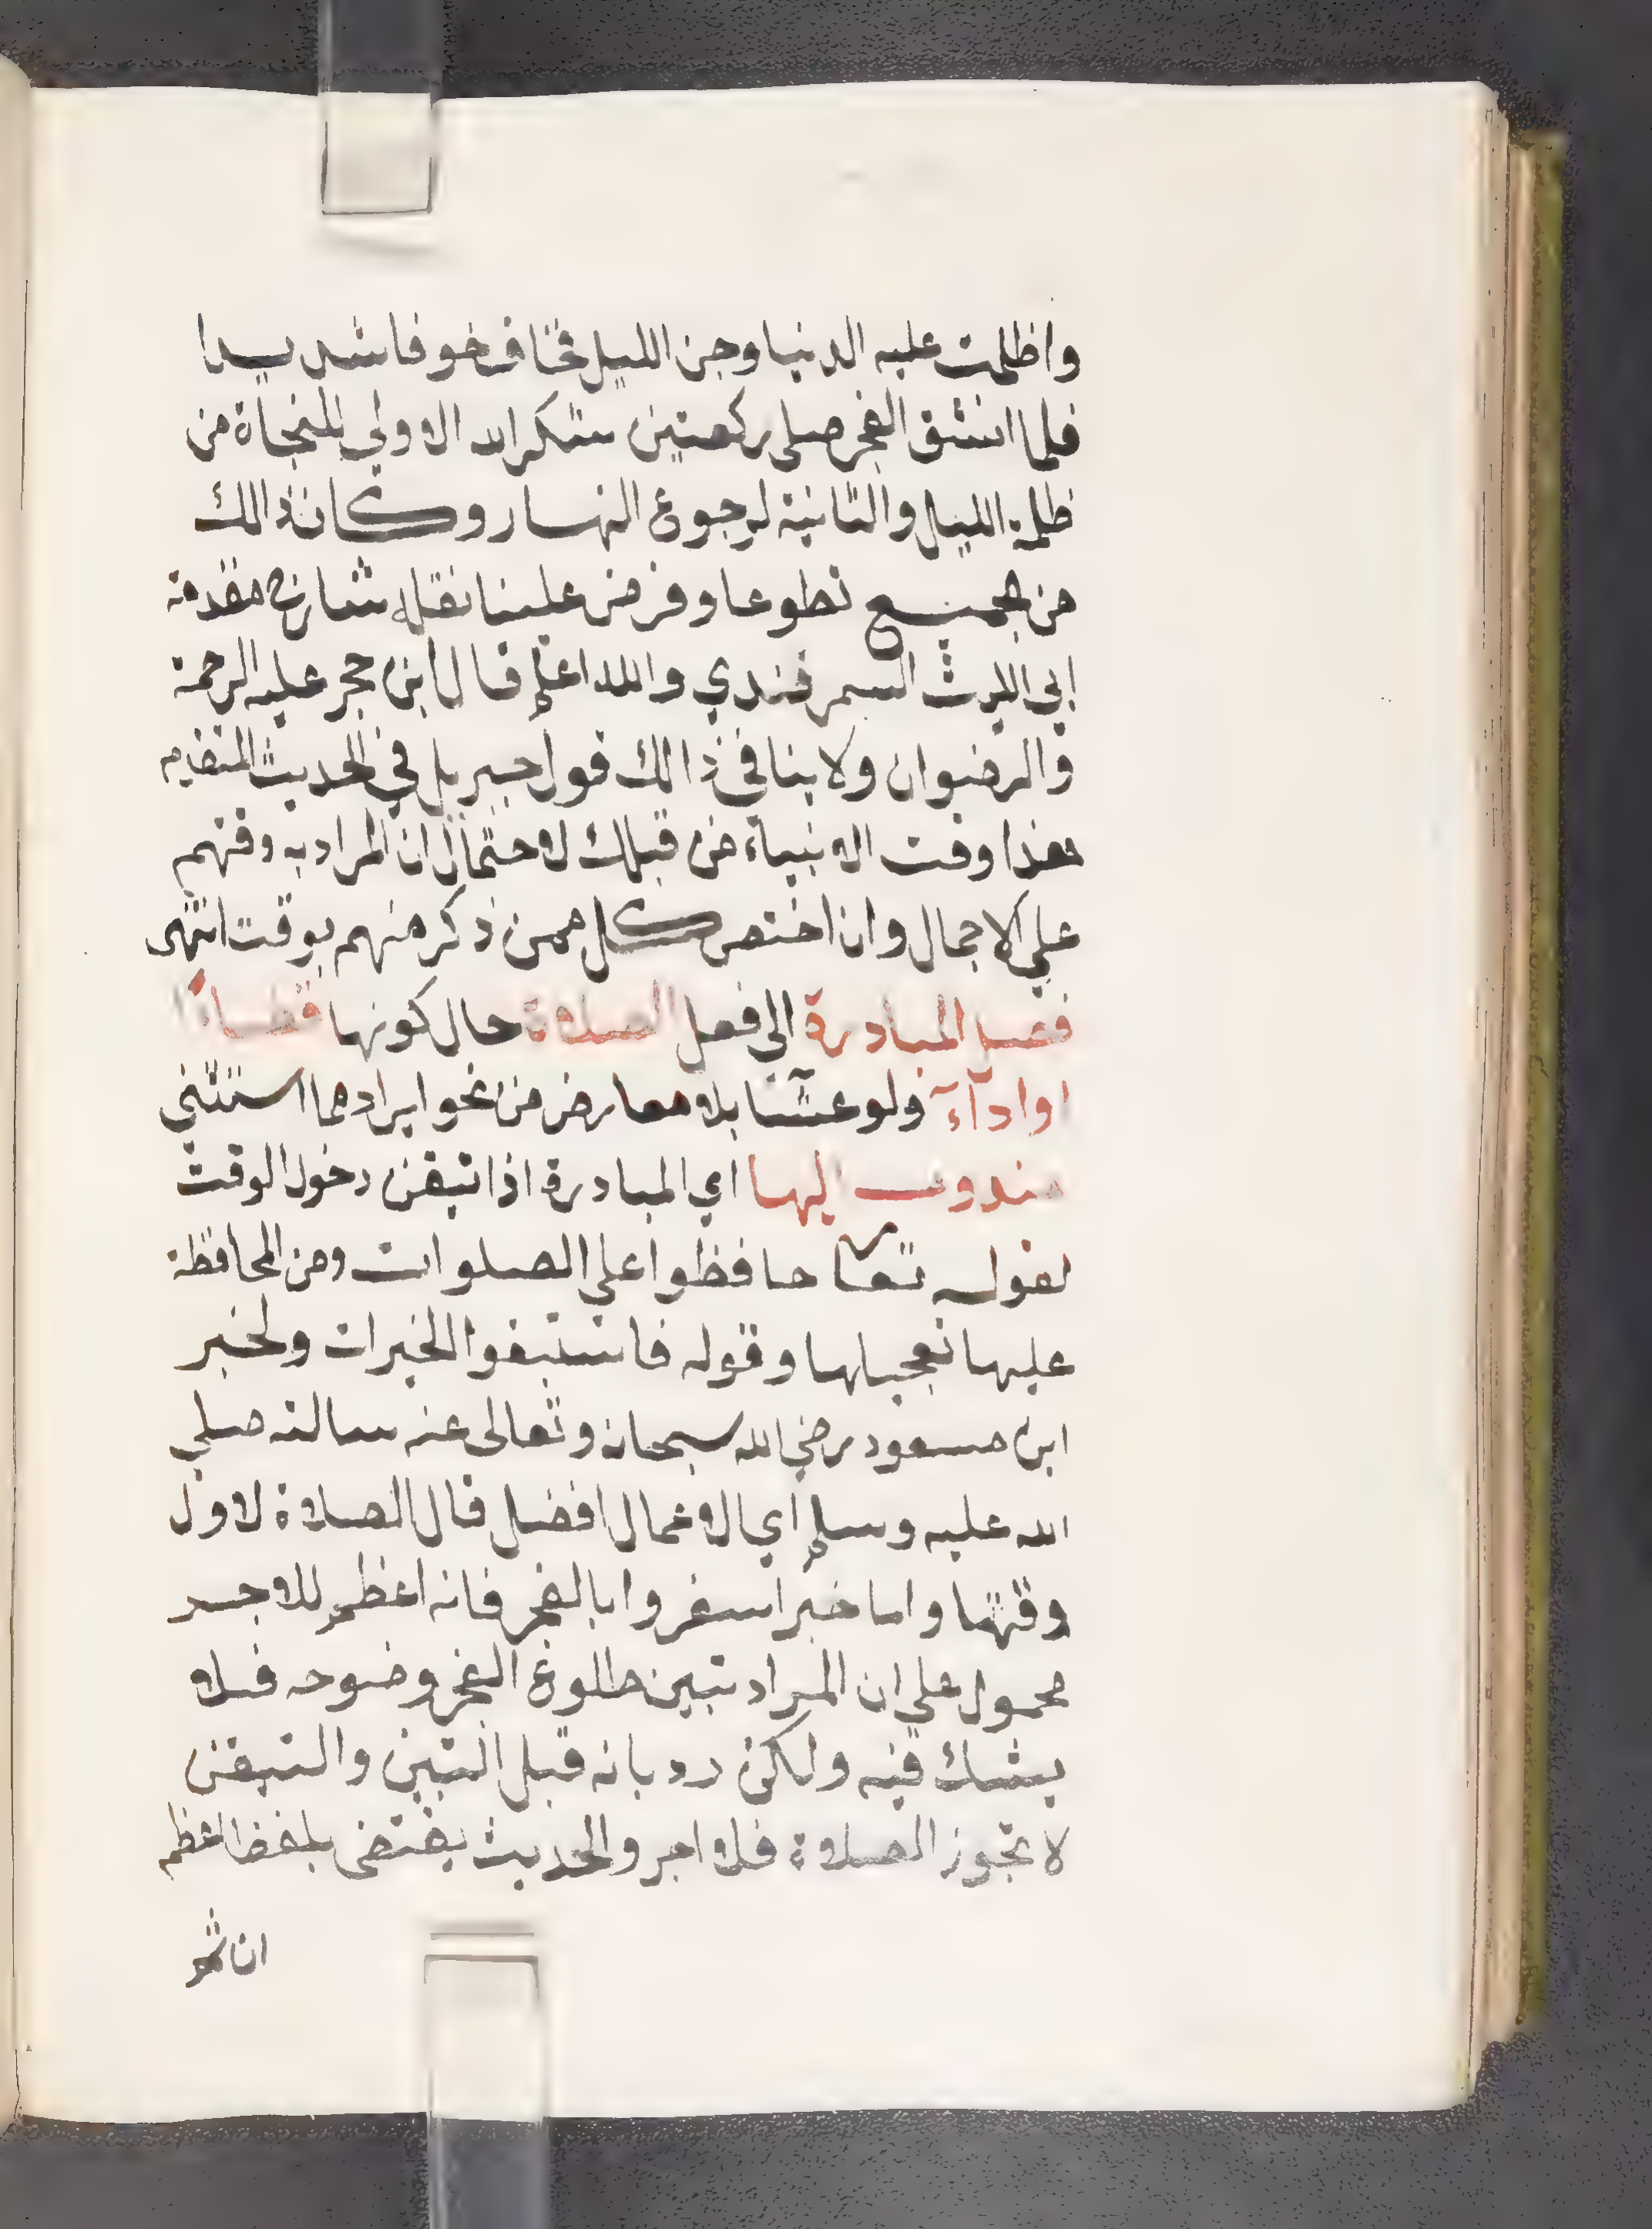 واظلمت عليه الدنيا وجن الليل فخاف خوفا شديدا
فلما انشق الفجر صلى ركعتين شكرا لله الاولي للنجاة من
ظلمة الليل والثانية لرجوع النهار وكان ذالك
من جميع تطوعا وفرض علينا نقله شارح مقدمة
ابي الليث السمرقندي والله اعلم قال ابن حجر عليه الرحمة
والرضوان ولا ينافي ذالك قول جبريل في الحديث المتقدم
هذا وقت الانبياء من قبلك لاحتمال ان المراد به وقتهم
علي الاجمال وان اختص كل ممن ذكر منهم بوقت انتهى
فصل المبادرة الي فعل الصلاة حال كونها قضاءا
او ادآء ولو عشا بلا معارض من نحو ايرادها استثني
مندوب اليها اي المبادرة اذا تيقن دخول الوقت
لقوله تعا حافظوا علي الصلوات ومن المحافظة
عليها تعجيلها وقوله فاستبقوا الخيرات ولخبر
ابن مسعود رضي الله سبحانه وتعالى عنه سالته صلي
الله عليه وسلم اي الاعمال افضل قال الصلاة لاول
وقتها واما خبر اسفروا بالفجر فانه اعظم للاجر
محمول علي ان المراد تبين طلوع الفجر وضوحه فلا
يشك فيه ولكن رد بانه قبل التبين والتيقن
لا تجوز الصلاة فلا اجر والحديث يقتضى بلفظ اعظم
ان ثم